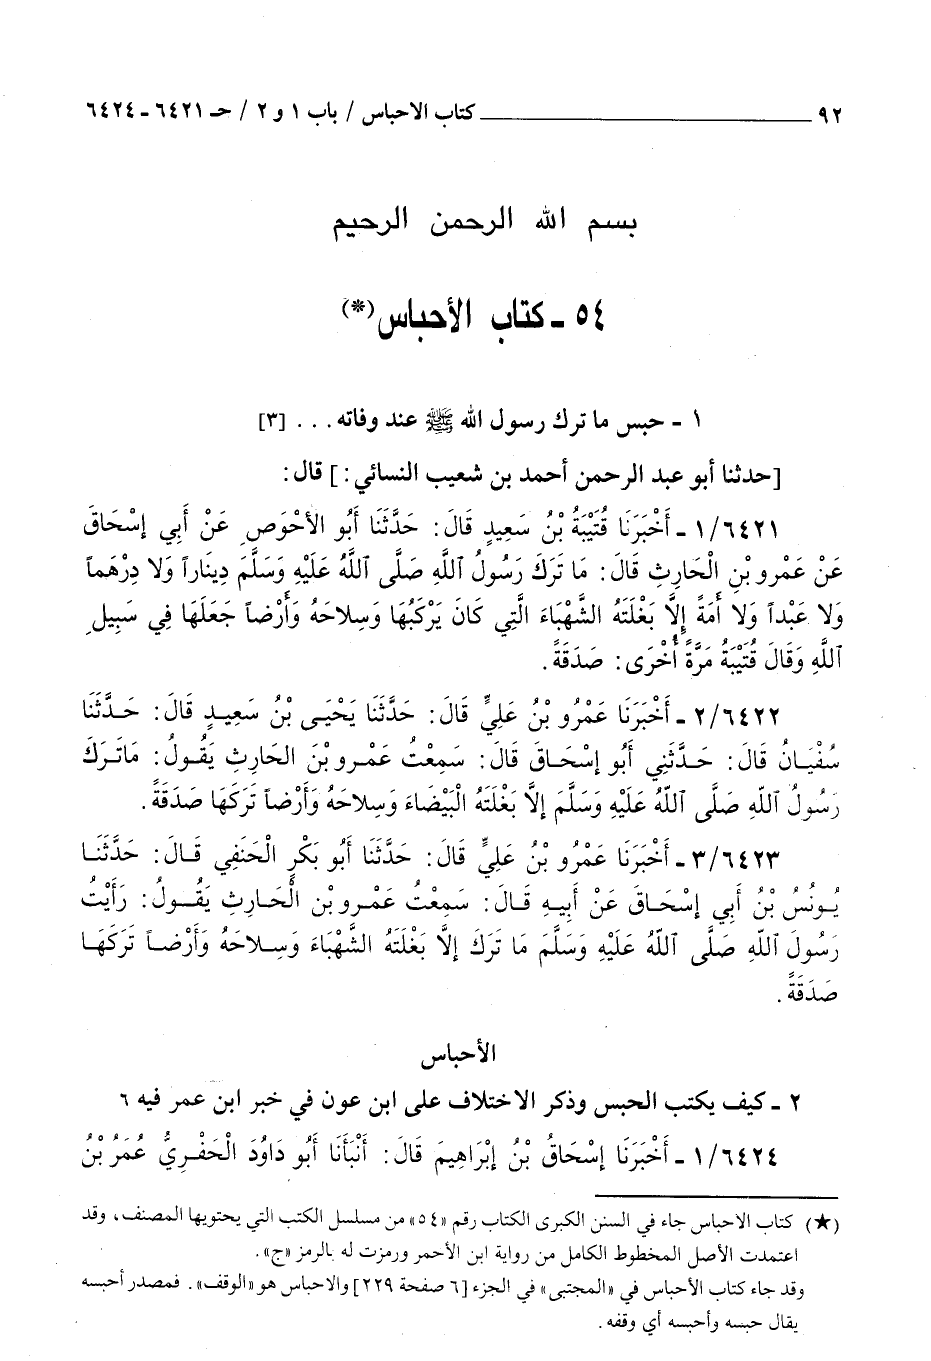 ٩٢ ــــــــــــــــــــ كتاب الاحباس / باب ١ و ٢ / حـ ٦٤٢١ ـ ٦٤٢٤
بسم الله الرحمن الرحيم
٥٤ ـ كتاب الأحباس(*)
١ ـ حبس ما ترك رسول الله ﷺ عند وفاته . . . [٣]
[حدثنا أبو عبد الرحمن أحمد بن شعيب النسائي:] قال:
١/٦٤٢١ ـ أَخْبَرَنَا قُتَيْبَةُ بْنُ سَعِيدٍ قَالَ: حَدَّثَنَا أَبُو الأَحْوَصِ عَنْ أَبِي إِسْحَاقَ
عَنْ عَمْرِو بْنِ الْحَارِثِ قَالَ: مَا تَرَكَ رَسُولُ اللَّهِ صَلَّى اللَّهُ عَلَيْهِ وَسَلَّمَ دِينَاراً وَلا دِرْهَماً
وَلا عَبْداً وَلا أَمَةً إِلَّا بَغْلَتَهُ الشَّهْبَاءَ الَّتِي كَانَ يَرْكَبُهَا وَسِلاحَهُ وَأَرْضاً جَعَلَهَا فِي سَبِيلِ
اللَّهِ وَقَالَ قُتَيْبَةُ مَرَّةً أُخْرَى: صَدَقَةً.
٢/٦٤٢٢ ـ أَخْبَرَنَا عَمْرُو بْنُ عَلِيٍّ قَالَ: حَدَّثَنَا يَحْيَى بْنُ سَعِيدٍ قَالَ: حَدَّثَنَا
سُفْيَانُ قَالَ: حَدَّثَنِي أَبُو إِسْحَاقَ قَالَ: سَمِعْتُ عَمْرو بْنَ الحَارِثِ يَقُولُ: مَاتَرَكَ
رَسُولُ اللَّهِ صَلَّى اللَّهُ عَلَيْهِ وَسَلَّمَ إِلَّا بَغْلَتَهُ الْبَيْضَاءَ وَسِلاحَهُ وَأَرْضاً تَرَكَهَا صَدَقَةً.
٣/٦٤٢٣ ـ أَخْبَرَنَا عَمْرُو بْنُ عَلِيٍّ قَالَ: حَدَّثَنَا أَبُو بَكْرٍ الْحَنَفِي قَالَ: حَدَّثَنَا
يُونُسُ بْنُ أَبِي إِسْحَاقَ عَنْ أَبِيهِ قَالَ: سَمِعْتُ عَمْرو بْنِ الْحَارِثِ يَقُولُ: رَأَيْتُ
رَسُولَ اللَّهِ صَلَّى اللَّهُ عَلَيْهِ وَسَلَّمَ مَا تَرَكَ إِلَّا بَغْلَتَهُ الشَّهْبَاءَ وَسِلاحَهُ وَأَرْضاً تَرَكَهَا
صَدَقَةً.
الأحباس
٢ ـ كيف يكتب الحبس وذكر الاختلاف على ابن عون في خبر ابن عمر فيه ٦
١/٦٤٢٤ ـ أَخْبَرَنَا إِسْحَاقُ بْنُ إِبْرَاهِيمَ قَالَ: أَنْبَأَنَا أَبُو دَاوُدَ الْحَفْرِيُّ عُمَرُ بْنُ
(★) كتاب الاحباس جاء في السنن الكبرى الكتاب رقم «٥٤» من مسلسل الكتب التي يحتويها المصنف، وقد
اعتمدت الأصل المخطوط الكامل من رواية ابن الأحمر ورمزت له بالرمز «ج».
وقد جاء كتاب الأحباس في «المجتبى» في الجزء [٦ صفحة ٢٢٩] والاحباس هو «الوقف». فمصدر أحبسه
يقال حبسه وأحبسه أي وقفه.